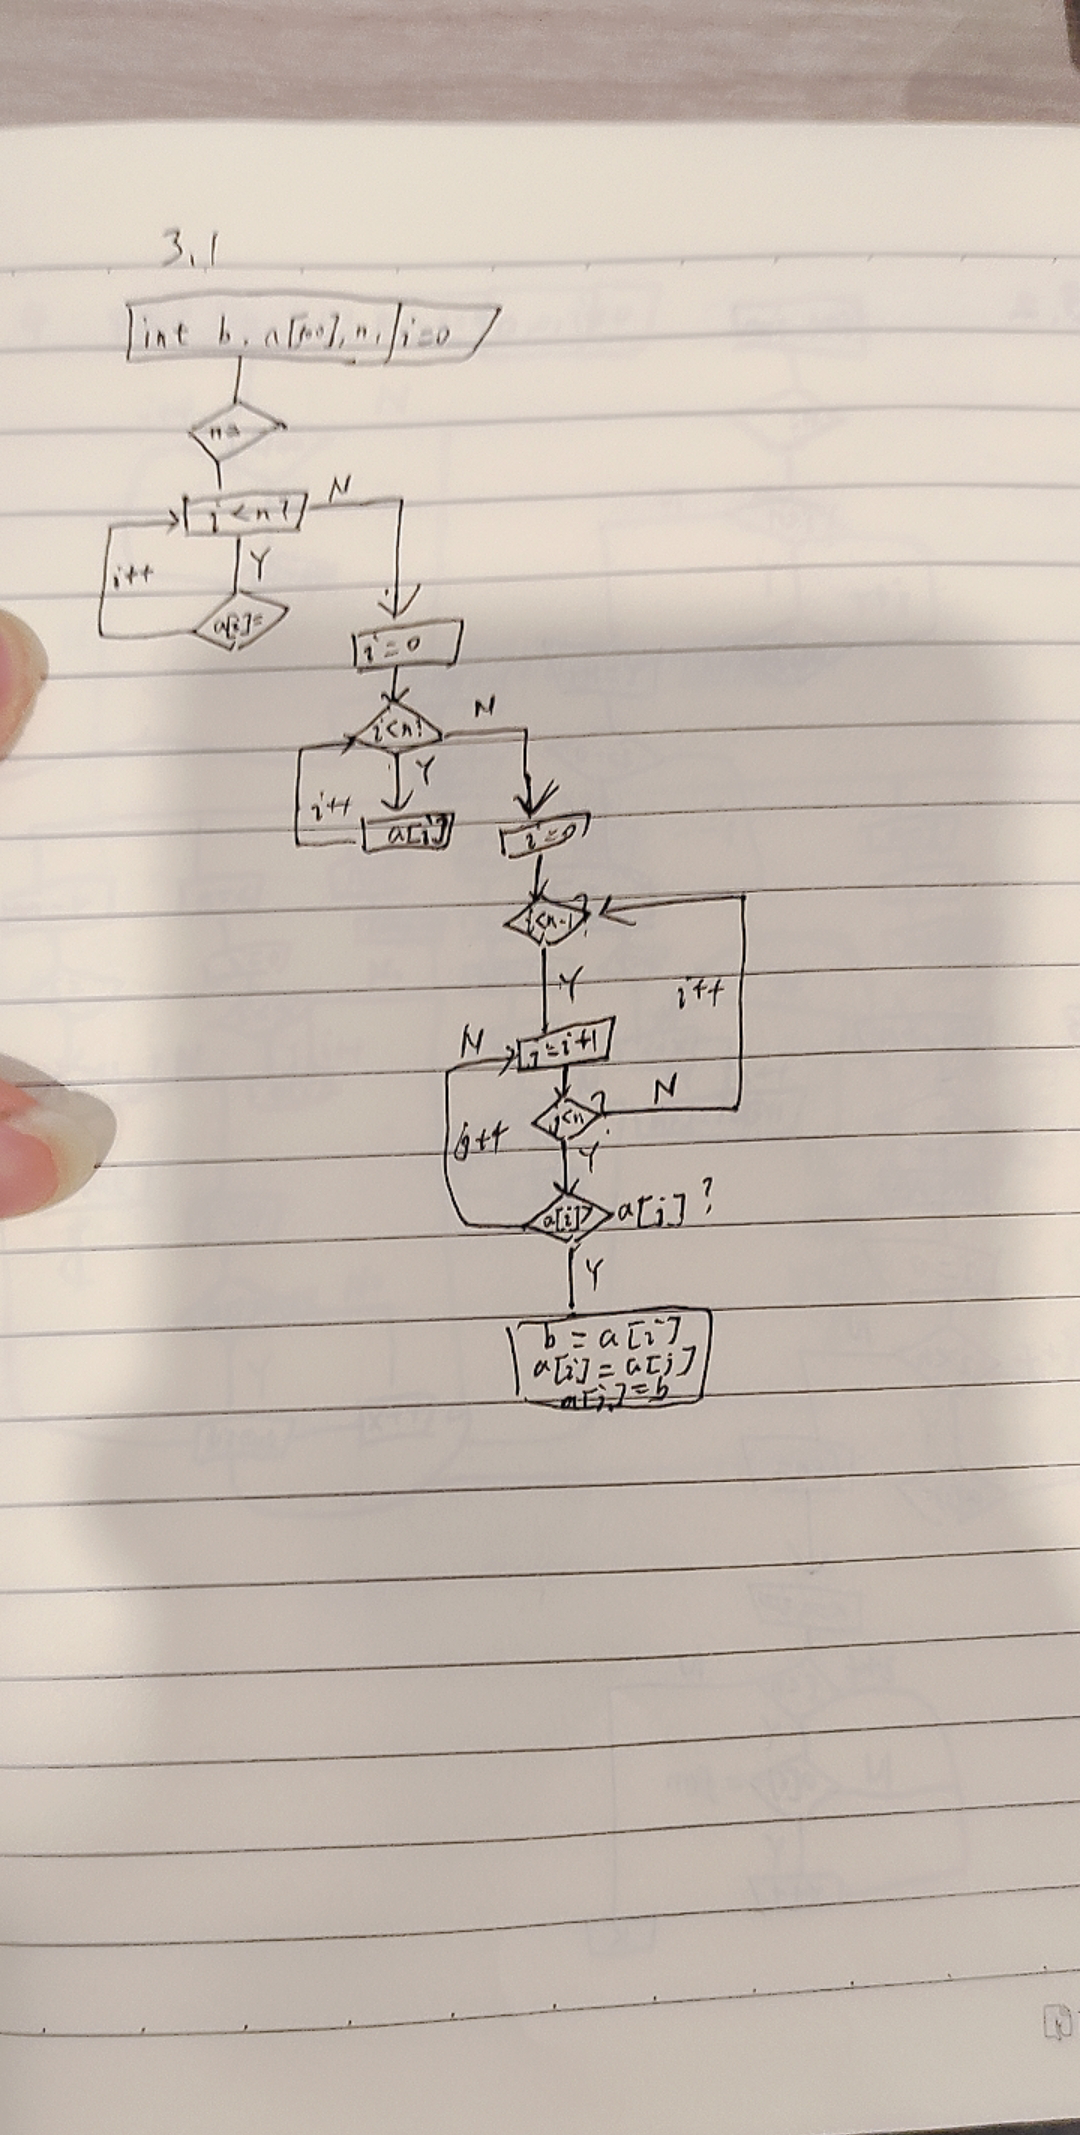 3.1
int b, a[100], n, i=0
n=
i<n?
N
Y
i++
a[i]=
i=0
i<n?
N
Y
i++
a[i]
i=0
i<n-1?
Y
i++
N
j=i+1
j<n?
N
j++
Y
a[i]>a[j]?
Y
b=a[i]
a[i]=a[j]
a[j]=b